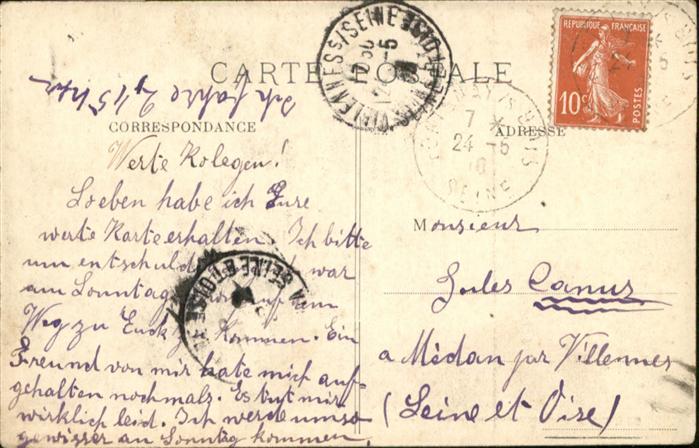 CARTE POSTALE
Ich fahre 2 15 hin
CORRESPONDANCE
Werte Kolegen!
Soeben habe ich Eure
werte Karte erhalten. Ich bitte
um entschuld war
am Sonntag auf dem
Weg zu Euch kommen. Ein
Freund von mir hate mich auf-
gehalten nochmals. Es tut mir
wirklich leid. Ich werde umso
gewisser an Sonntag kommen.
VILLENNES S/SEINE
SEINE-ET-OISE
REPUBLIQUE FRANÇAISE
10c
POSTES
FONTENAY S/S BOIS
7 *
24 -5
10
SEINE
ADRESSE
Monsieur
Jules Canus
a Médan par Villennes
(Seine et Oise)